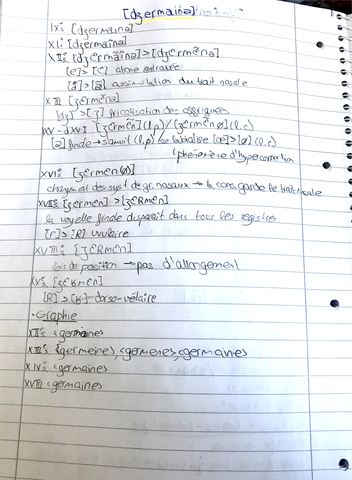 [dʒermainə]
IXᵉ: [dʒermainə]
XIᵉ: [dʒermainə]
XIIᵉ: [dʒermãinə] > [dʒɛrmɛ̃nə]
[e] > [ɛ] atone entravée
[a] > [ã] assimilation du trait nasale
XIII [ʒɛrmɛ̃nə]
[dʒ] > [ʒ] fricatisation des affriquées
XV - dXVI [ʒɛrmɛ̃n] (l.p) / [ʒɛrmɛ̃nø] (l.c)
[ə] finale → s'amuit (l.p) se labialise [œ] > [ø] (l.c)
↳ phénomène d'hypercorrection
XVIᵉ: [ʒɛrmɛn(ø)]
changement des syst de gr. nasaux → la cons. garde le trait nasale
XVIIᵉ: [ʒɛrmɛn] > [ʒɛRmɛn]
la voyelle finale disparait dans tous les registres
[r] > [R] uvulaire
XVIIIᵉ: [ʒɛRmɛn]
lois de position → pas d'allongement
XXᵉ: [ʒɛʁmɛn]
[R] > [ʁ] dorso-vélaire
• Graphie
XIIᵉ: <germaines
XIIIᵉ: <germeines, <germenes, <germaines
XIVᵉ: <germaines
XVIII <germaines